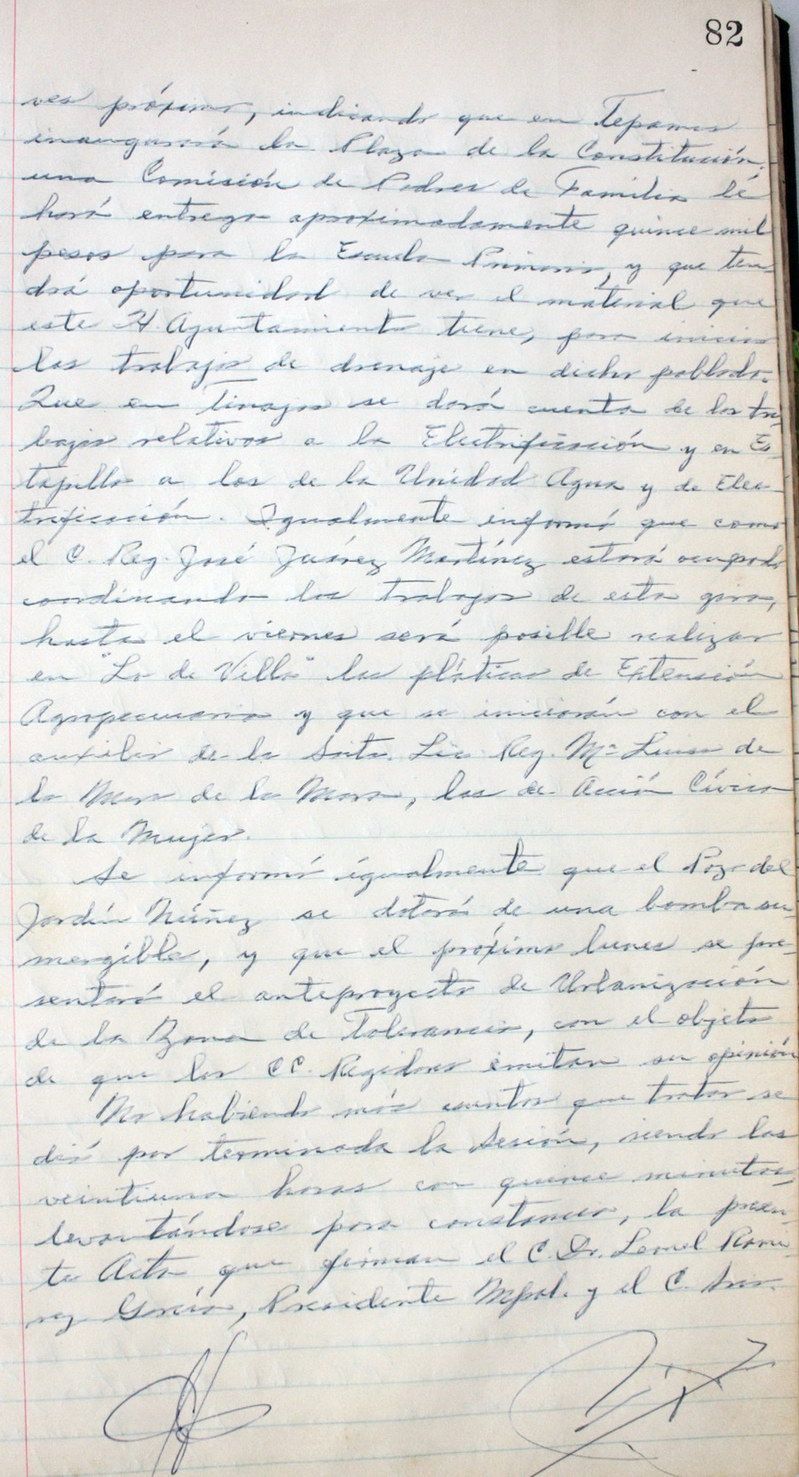 82
ves próximo, indicando que en Tepames
inaugurará la Plaza de la Constitución;
una Comisión de Padres de Familia le
hará entrega aproximadamente quince mil
pesos para la Escuela Primaria, y que ten
drá oportunidad de ver el material que
este H Ayuntamiento tiene, para iniciar
los trabajos de drenaje en dicho poblado.
Que en Tinajas se dará cuenta de los tra
bajos relativos a la Electrificación y en Es-
tapilla a los de la Unidad Agua y de Elec-
trificación. Igualmente informó que como
el C. Reg. José Juárez Martínez estará ocupado
coordinando los trabajos de esta gira,
hasta el viernes será posible realizar
en "Lo de Villa" las pláticas de Extensión
Agropecuaria y que se iniciarán con el
auxilio de la Srita. Lic. Reg. Ma Luisa de
la Mora de la Mora, las de Acción Cívica
de la Mujer.
Se informó igualmente que el Pozo del
Jardín Núñez se dotará de una bomba su-
mergible, y que el próximo lunes se pre-
sentará el anteproyecto de Urbanización
de la Zona de Tolerancia, con el objeto
de que los CC. Regidores emitan su opinión
No habiendo más asuntos que tratar se
dió por terminada la Sesión, siendo las
veintiuna horas con quince minutos,
levantándose para constancia, la presen-
te Acta que firman el C. Dr. Leonel Ramí-
rez García, Presidente Mpal. y el C. Srio.